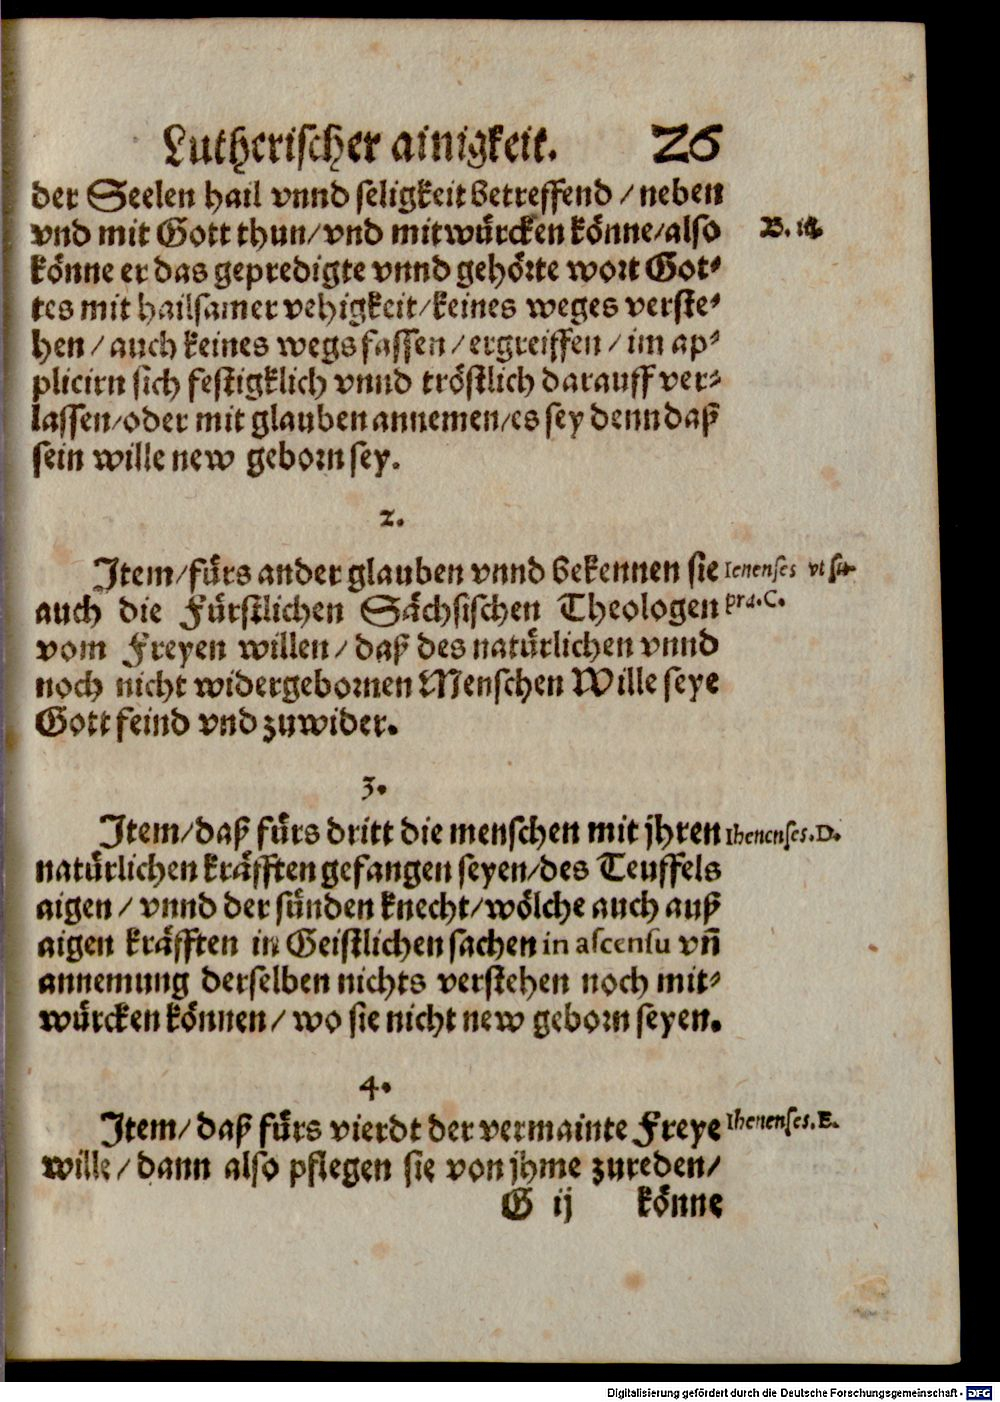 Lutherischer ainigkeit. 26
der Seelen hail vnnd seligkeit betreffend / neben
vnd mit Gott thun / vnd mitwürcken könne / also B. 14.
könne er das gepredigte vnnd gehörte wort Got⸗
tes mit hailsamer vehigkeit / keines weges verste⸗
hen / auch keines wegs fassen / ergreiffen / im ap⸗
plicirn sich festigklich vnnd tröstlich darauff ver⸗
lassen / oder mit glauben annemen / es sey denn daß
sein wille new geborn sey.
2.
Item / fürs ander glauben vnnd bekennen sie Ienenses vt su-
auch die Fürstlichen Sächsischen Theologen pra. C.
vom Freyen willen / daß des natürlichen vnnd
noch nicht widergebornen Menschen Wille seye
Gott feind vnd zuwider.
3.
Item / daß fürs dritt die menschen mit jhren Ihenenses. D.
natürlichen kräfften gefangen seyen / des Teuffels
aigen / vnnd der sünden knecht / wölche auch auß
aigen kräfften in Geistlichen sachen in ascensu vñ
annemung derselben nichts verstehen noch mit⸗
würcken können / wo sie nicht new geborn seyen.
4.
Item / daß fürs vierdt der vermainte Freye Ihenenses. E.
wille / dann also pflegen sie von jhme zureden /
G ij könne
Digitalisierung gefördert durch die Deutsche Forschungsgemeinschaft - DFG